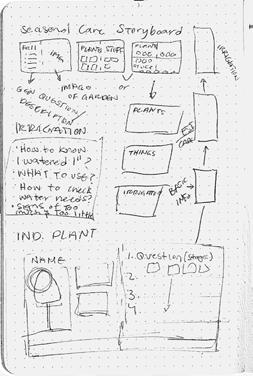 Seasonal Care Storyboard
Fall
IMG
PLANTS STUFF
PLANTS
IMAGE OR
GEN QUESTION/
OF GARDEN
DESCRIPTION
IRRIGATION
• How to know
I watered 1"?
• WHAT TO USE?
• How to check
water needs?
• Signs of too
much & too little
PLANTS
THINGS
IRRIGATION
IRRIGATION
EST
CARE
BASIC
INFO
IND. PLANT
NAME
1. Question (stage)
2.
3.
4